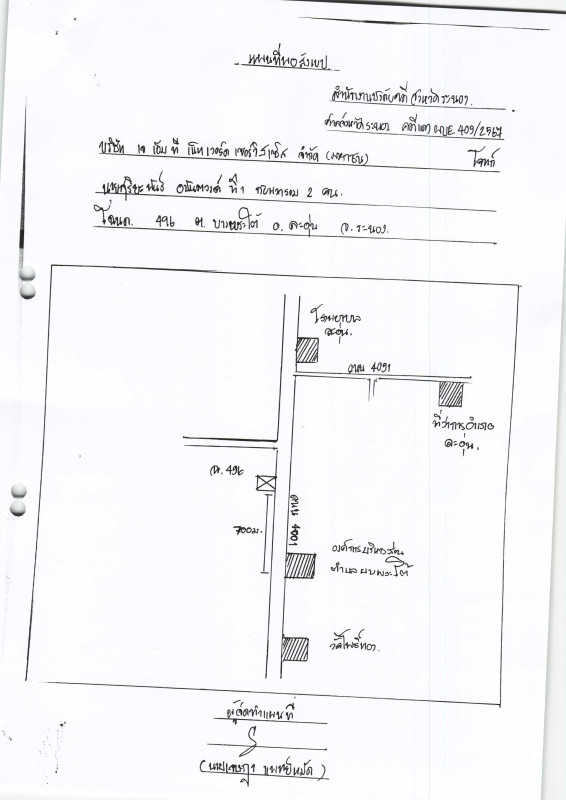 แผนที่พอสังเขป
สำนักงานบังคับคดีจังหวัดระนอง
ศาลจังหวัดระนอง คดีแดง ผบE 409/2567
บริษัท เจ เอ็ม ที เน็ทเวอร์ค เซอร์วิสเซ็ส จำกัด (มหาชน) โจทก์
ที่ 1 กับพวกรวม 2 คน.
โฉนด. 496 ต. บางพระใต้ อ. ละอุ่น จ. ระนอง.
โรงพยาบาล
ละอุ่น.
ถนน 4091
ที่ว่าการอำเภอ
ละอุ่น.
ฉ. 496
700ม.
ถนน 4091
องค์การบริหารส่วน
ตำบล บางพระใต้
วัดโพธิ์ทอง.
ผู้จัดทำแผนที่